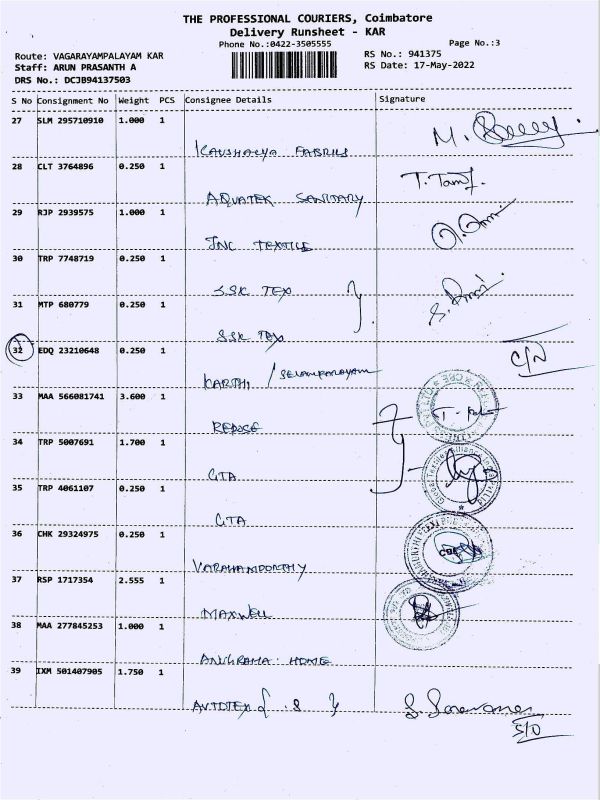 THE PROFESSIONAL COURIERS, Coimbatore
Delivery Runsheet - KAR
Phone No.:0422-3505555
Page No.:3
Route: VAGARAYAMPALAYAM KAR
RS No.: 941375
Staff: ARUN PRASANTH A
RS Date: 17-May-2022
DRS No.: DCJB94137503
S No Consignment No Weight PCS Consignee Details Signature
27 SLM 295710910 1.000 1
KAUSHALYA FABRICS M.
28 CLT 3764896 0.250 1
AQUATEK SANITARY T.
29 RJP 2939575 1.000 1
JNC TEXTILE
30 TRP 7748719 0.250 1
SSK TEX
31 MTP 680779 0.250 1
SSK TEX
32 EDQ 23210648 0.250 1 C/N
KARTHI / SELAMPALAYAM
33 MAA 566081741 3.600 1
REPOSE T.
34 TRP 5007691 1.700 1
GTA
35 TRP 4061107 0.250 1
GTA
36 CHK 29324975 0.250 1
VARAHAMOORTHY
37 RSP 1717354 2.555 1
MAXWELL
38 MAA 277845253 1.000 1
ANUGRAHA HOME
39 IXM 501407905 1.750 1
S. Saravanan
S/O